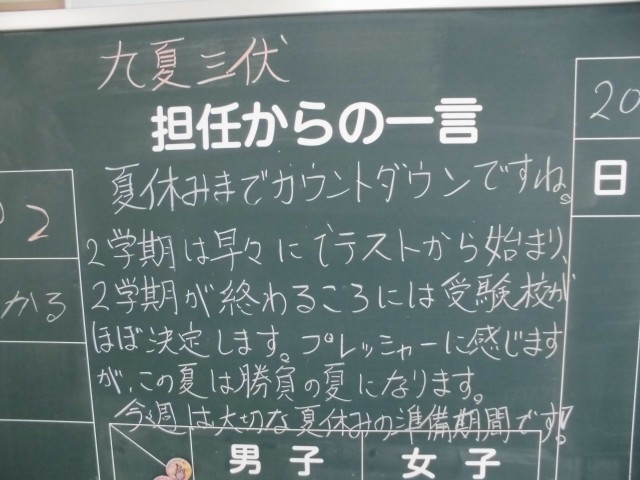 九夏三伏
担任からの一言
夏休みまでカウントダウンですね。
2学期は早々にでテストから始まり、
2学期が終わるころには受験校が
ほぼ決定します。プレッシャーに感じます
が、この夏は勝負の夏になります。
今週は大切な夏休みの準備期間です!
男子
女子
2
かる
20
日